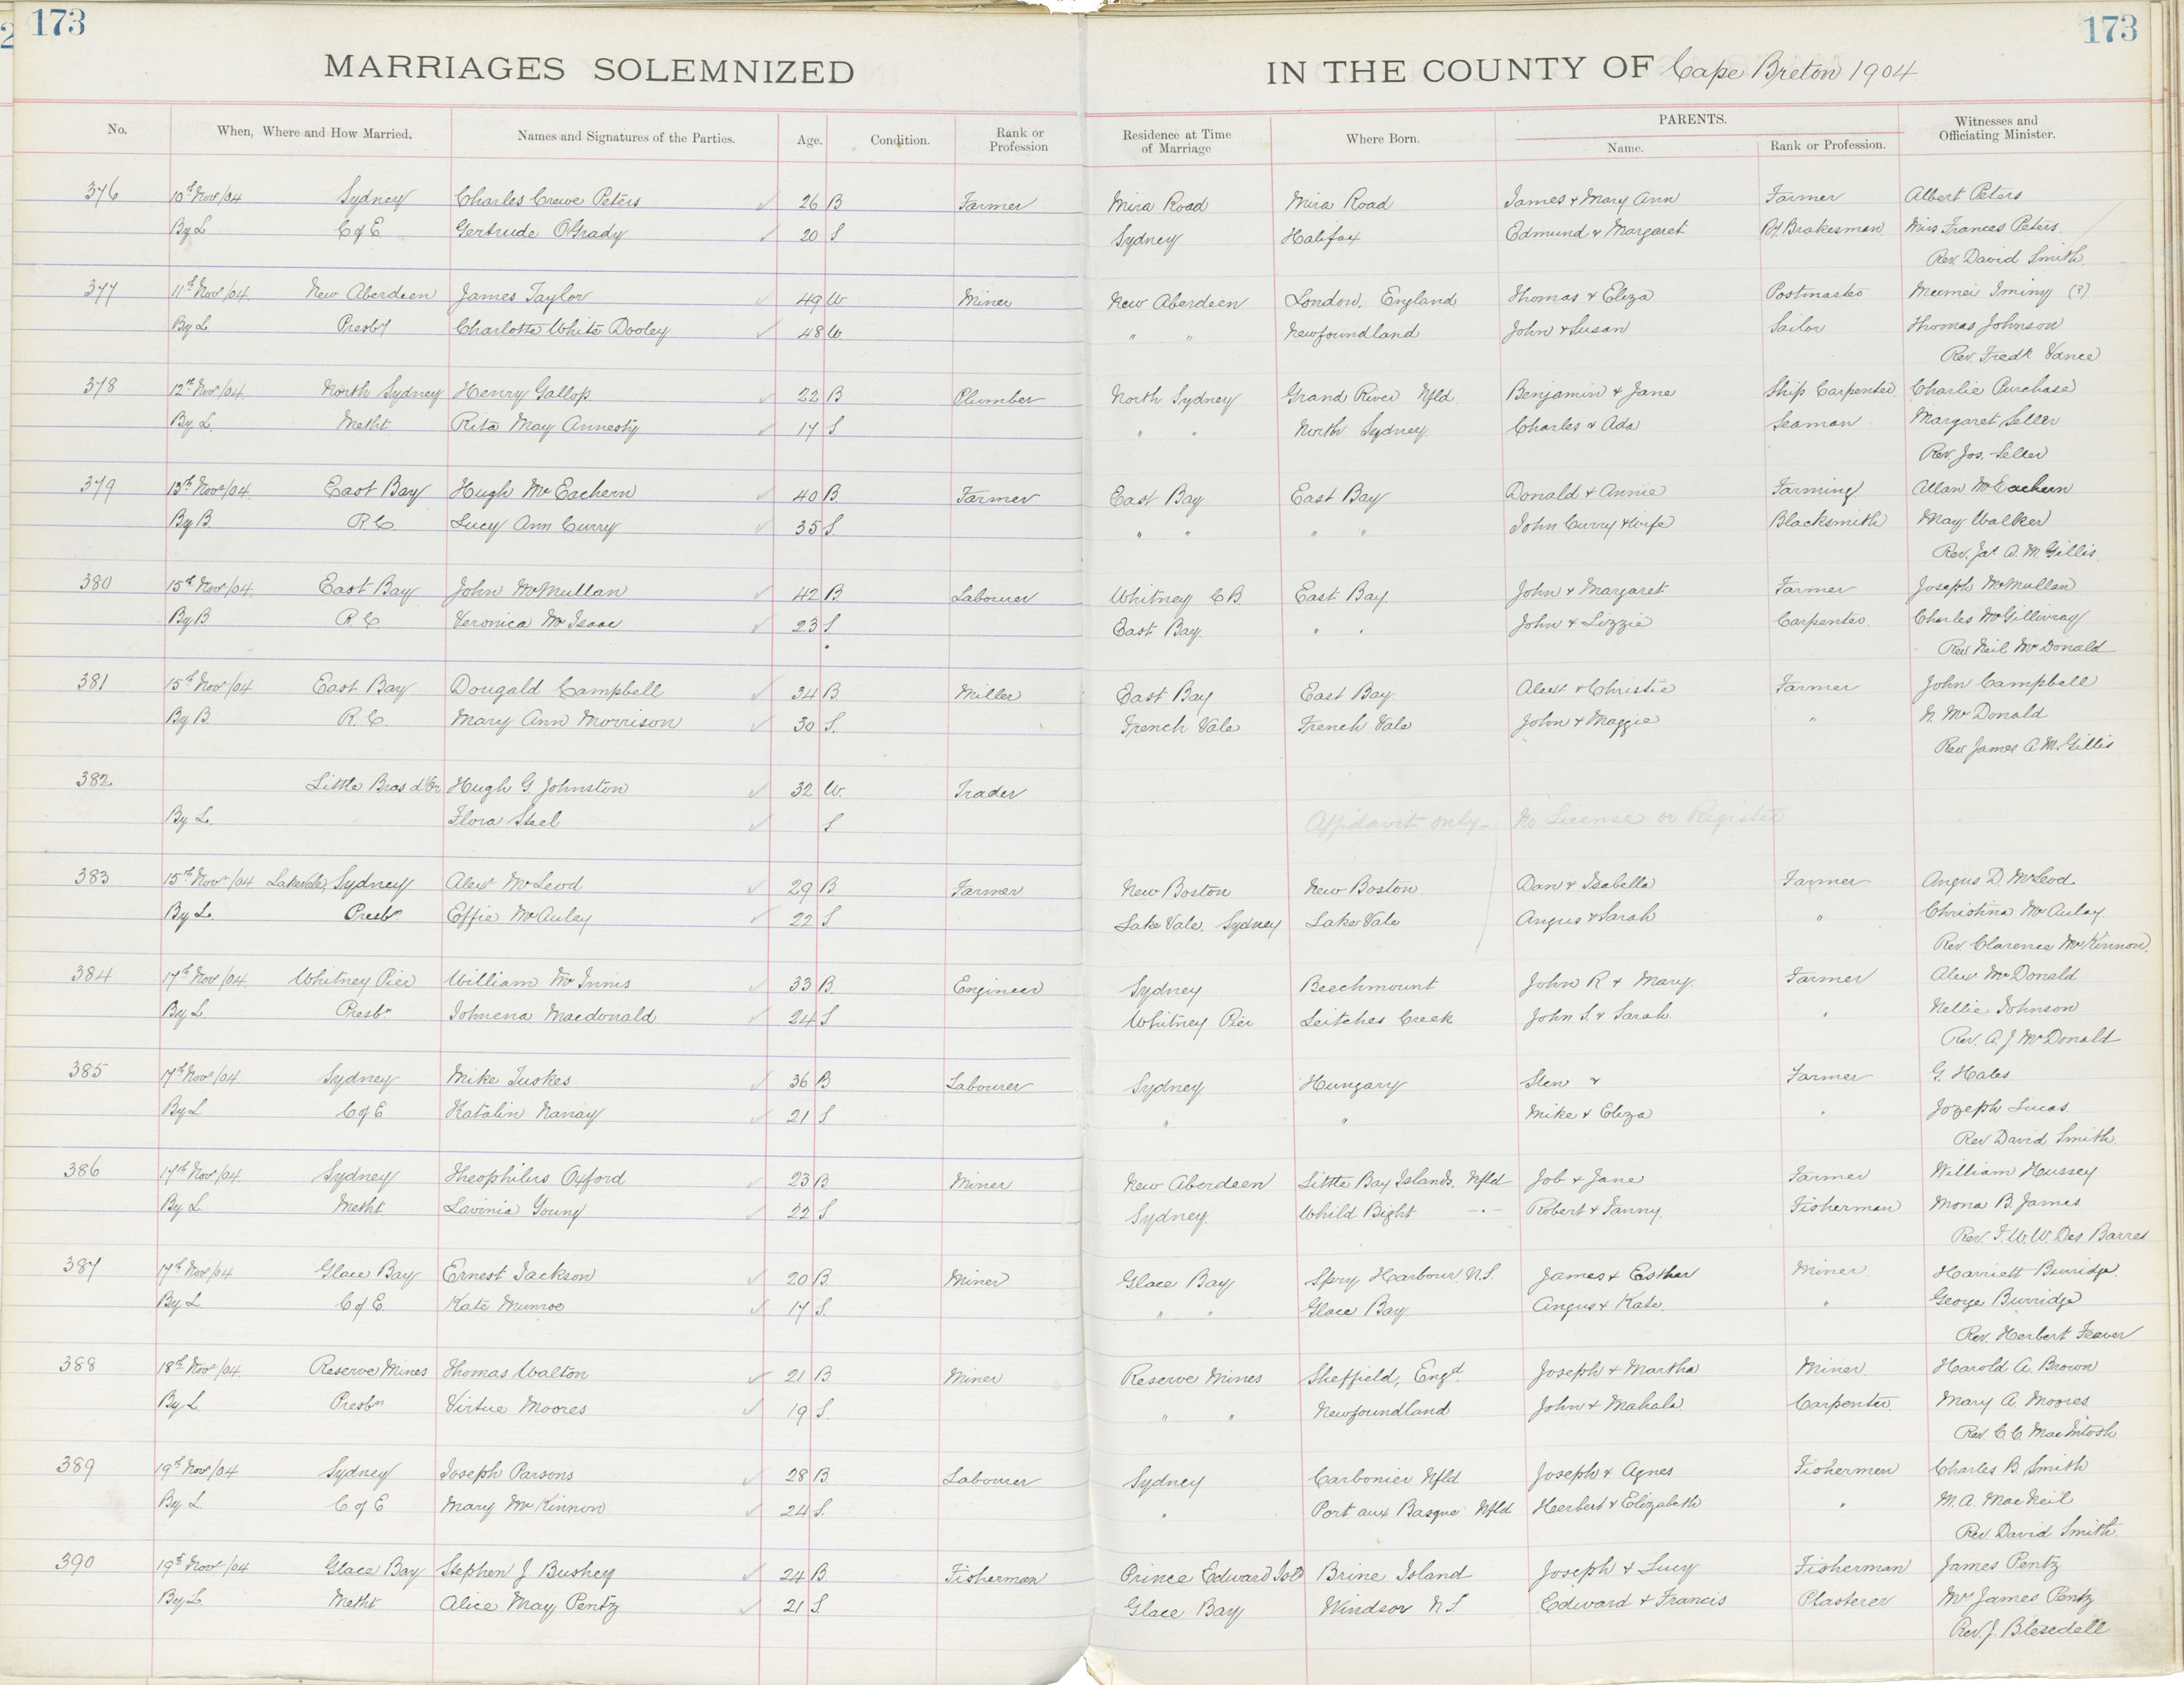 173
173
MARRIAGES SOLEMNIZED IN THE COUNTY OF Cape Breton 1904
No. When, Where and How Married. Names and Signatures of the Parties. Age. Condition. Rank or Profession Residence at Time of Marriage Where Born. PARENTS. Name. Rank or Profession. Witnesses and Officiating Minister.
376 10th Nov/04 Sydney Charles Crewe Peters 26 B Farmer Mira Road Mira Road James & Mary Ann Farmer Albert Peters
By L C of E Gertrude O'Grady 20 S Sydney Halifax Edmund & Margaret Ry Brakesman Miss Frances Peters
Rev. David Smith
377 11th Nov/04 New Aberdeen James Taylor 49 W Miner New Aberdeen London, England Thomas & Eliza Postmaster Meemei Iminy (?)
By L Presby Charlotte White Dooley 48 W. " " Newfoundland John & Susan Sailor Thomas Johnson
Rev. Fredk Vance
378 12th Nov/04 North Sydney Henry Gallop 22 B Plumber North Sydney Grand River Nfld. Benjamin & Jane Ship Carpenter Charlie Purchase
By L. Metht. Rita May Annesty 17 S " " North Sydney Charles & Ada Seaman Margaret Seller
Rev. Jos. Seller
379 13th Nov/04. East Bay Hugh McEachern 40 B Farmer East Bay East Bay Donald & Annie Farming Allan McEachern
By B R C Lucy Ann Curry 35 S. " " " " John Curry & wife Blacksmith May Walker
Rev. Jas A. McGillis
380 15th Nov/04. East Bay John McMullan 42 B. Labourer Whitney C.B. East Bay. John & Margaret Farmer Joseph McMullan
By B R. C. Veronica McIsaac 23 S. East Bay. " " John & Lizzie Carpenter. Charles McGillivray
Rev Neil McDonald
381 15th Nov/04 East Bay Dougald Campbell 34 B. Miller East Bay East Bay Alex & Christie Farmer John Campbell
By B R. C. Mary Ann Morrison 30 S. French Vale French Vale John & Maggie " N. McDonald
Rev James A McGillis
382 Little Bras d'Or Hugh G. Johnston 32 W. Trader
By L. Flora Steel S Affidavit only - No License or Register
383 15th Nov/04 Lakevale, Sydney Alex McLeod 29 B Farmer New Boston New Boston Dan & Isabella Farmer Angus D McLeod
By L. Presbn Effie McAulay 22 S. Lake Vale, Sydney Lake Vale Angus & Sarah " Christina McAulay
Rev Clarence McKinnon
384 17th Nov/04 Whitney Pier William McInnis 33 B. Engineer Sydney Beechmount John R & Mary. Farmer Alex McDonald
By L Presbn Johnena Macdonald 24 S Whitney Pier Leitches Creek John S. & Sarah " Nellie Johnson
Rev. A J McDonald
385 17th Nov/04 Sydney Mike Tuskes 36 B Labourer Sydney Hungary Stew & Farmer G. Hales
By L C of E Katalin Nanay 21 S " " Mike & Eliza " Jozeph Lucas.
Rev David Smith
386 17th Nov/04. Sydney Theophilus Oxford 23 B Miner New Aberdeen Little Bay Islands, Nfld Job & Jane Farmer William Hussey
By L. Metht. Lavinia Young 22 S Sydney. Whild Bight - " - Robert & Fanny. Fisherman Mona B. James
Rev. F. W. W. Des Barres
387 17th Nov/04 Glace Bay Ernest Jackson 20 B. Miner Glace Bay Spry Harbour, N.S. James & Esther Miner Harriett Burridge
By L C of E. Kate Munroe 17 S. " " Glace Bay Angus & Kate. " George Burridge
Rev. Herbert Feaver
388 18th Nov/04. Reserve Mines Thomas Walton 21 B Miner Reserve Mines Sheffield, Engd. Joseph & Martha Miner Harold A. Brown
By L. Presbn Virtue Moores 19 S. " " Newfoundland John & Mahala Carpenter. Mary A. Moores
Rev. C C MacIntosh
389 19th Nov/04 Sydney Joseph Parsons 28 B Labourer Sydney Carbonier Nfld Joseph & Agnes Fishermen Charles B. Smith
By L C of E Mary McKinnon 24 S. " Port aux Basque Nfld Herbert & Elizabeth " M. A. MacNeil
Rev David Smith
390 19th Nov/04 Glace Bay Stephen J Bushey 24 B Fisherman Prince Edward Isd Brine Island Joseph & Lucy Fisherman James Pentz
By L Metht Alice May Pentz 21 S. Glace Bay Windsor N S Edward & Francis Plasterer Mrs James Pentz
Rev. J. Blesedell